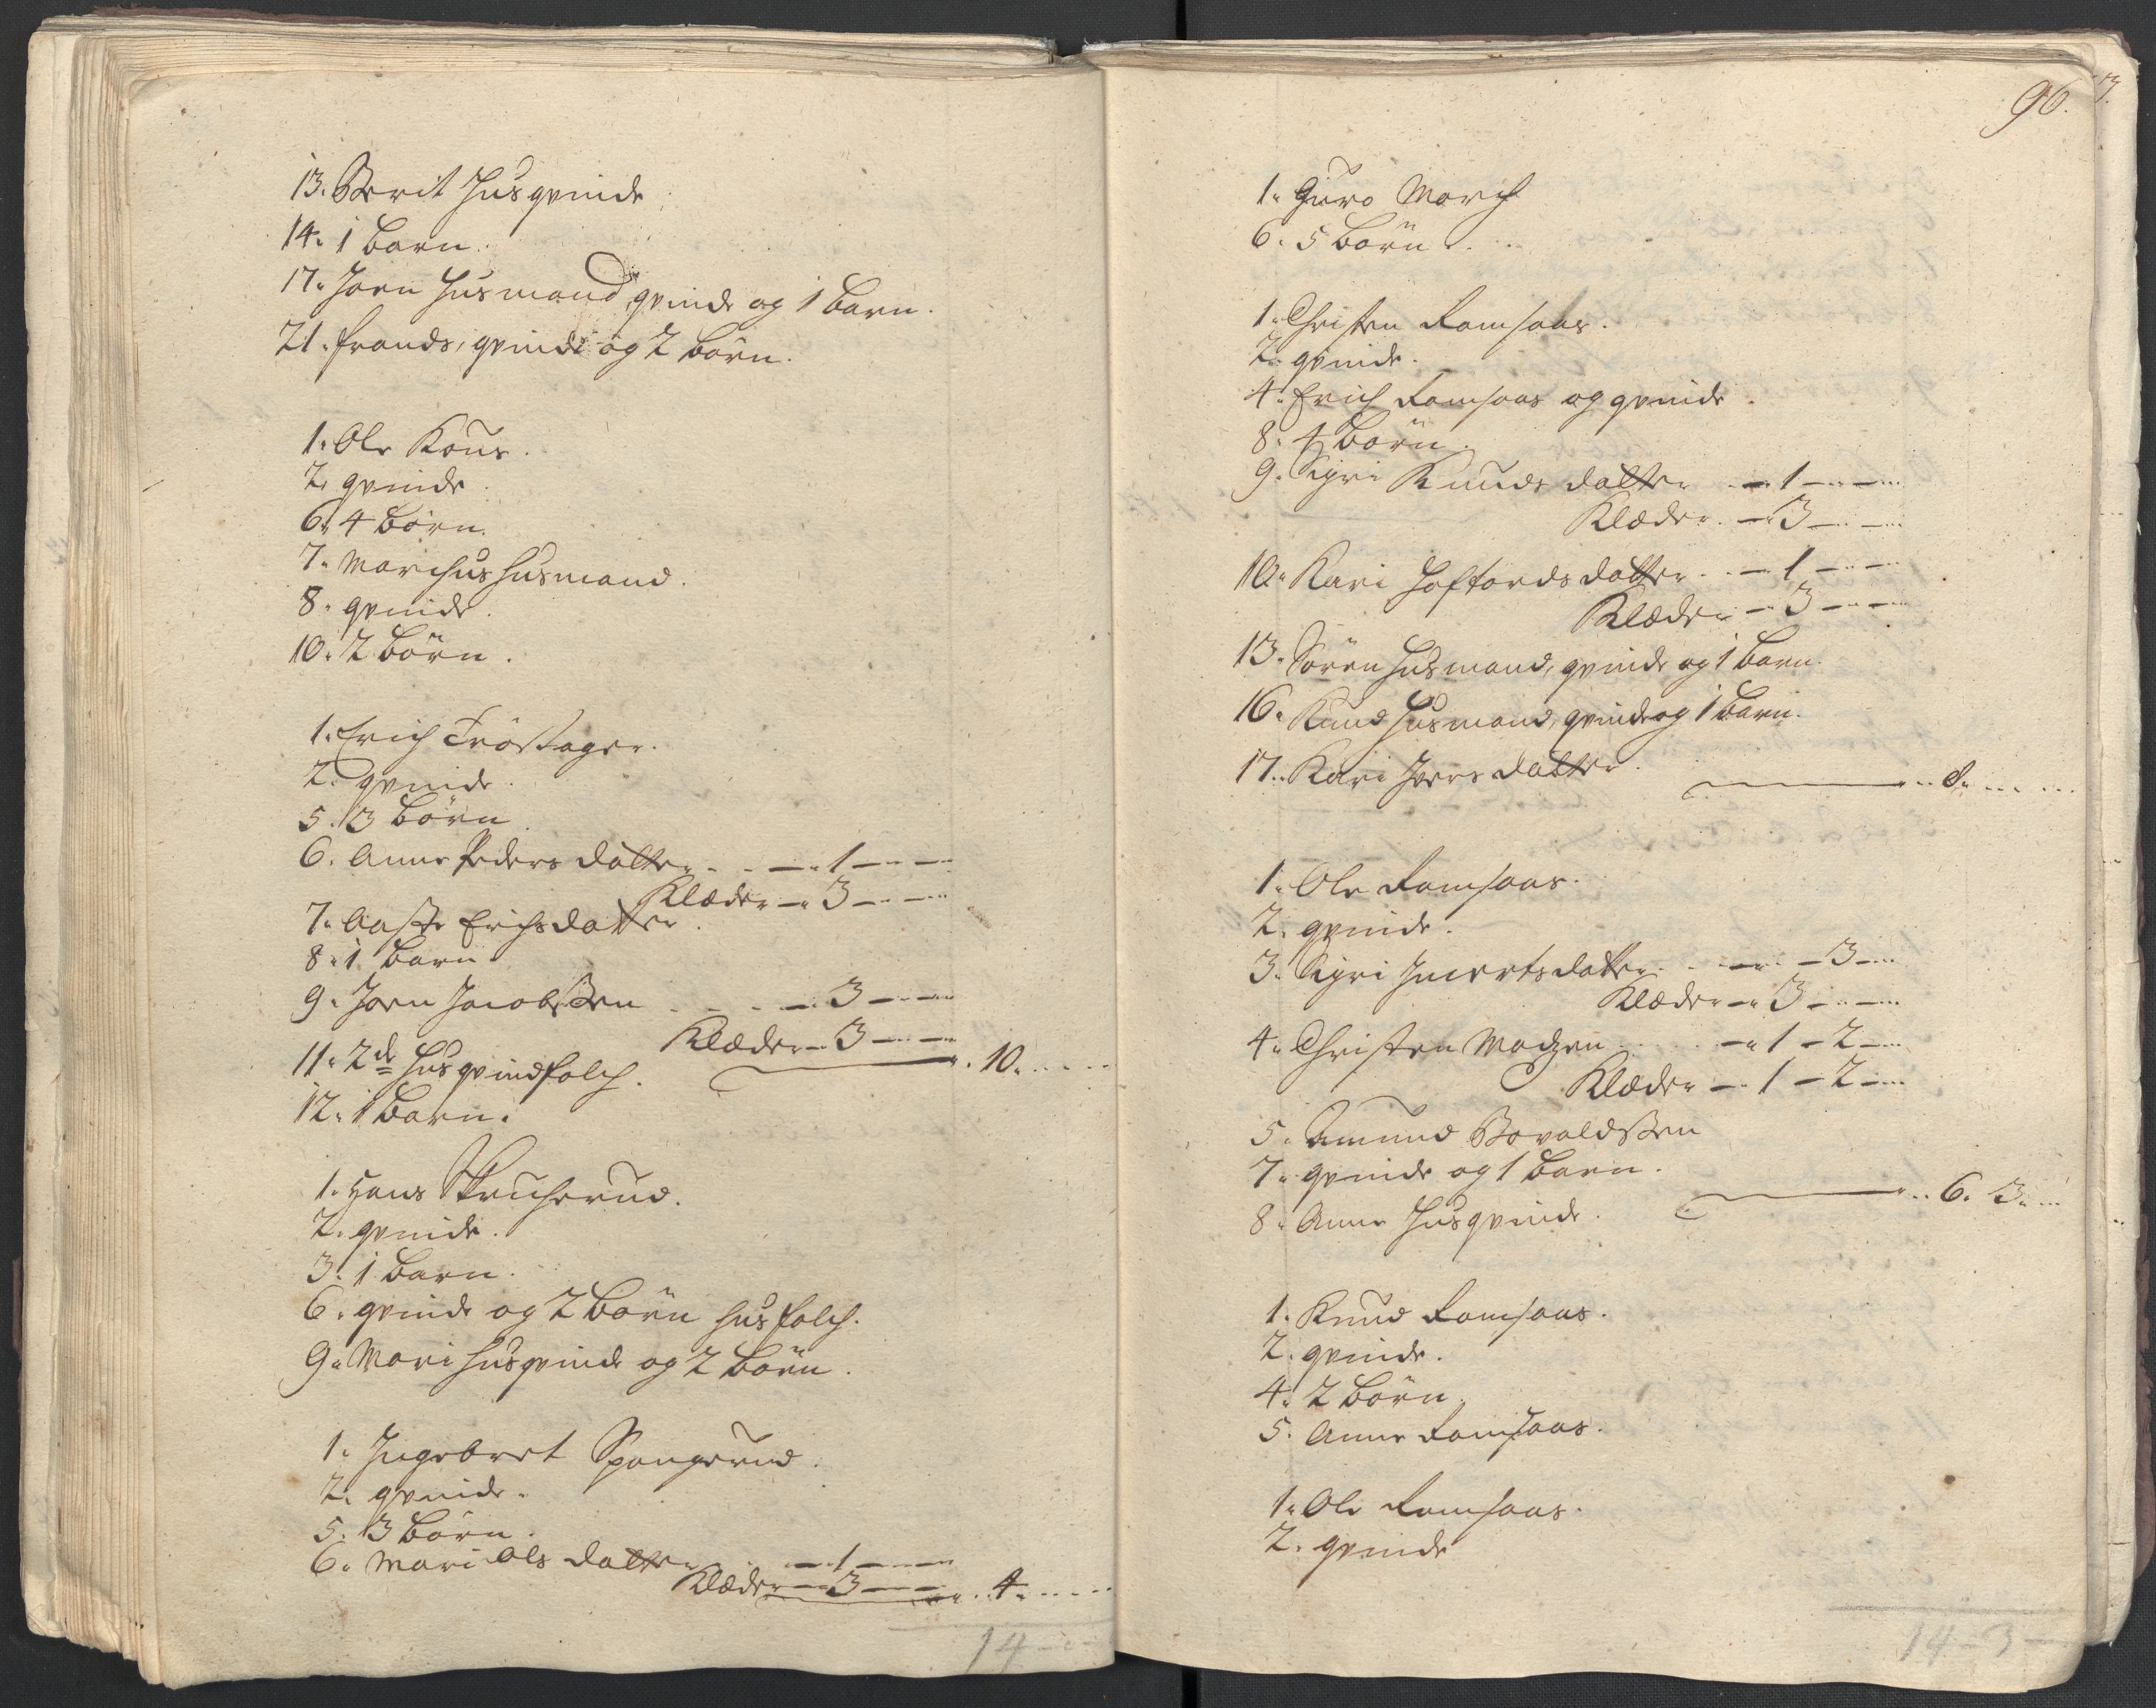 13. Berit Husqvinde
14. 1 barn.
17. Joen Husmand, qvinde og 1 barn.
21. Frands, qvinde og 2 börn.
1. Ole Kous.
2. qvinde.
6. 4 börn.
7. Marchus Husmand.
8. qvinde.
10. 2 börn.
1. Erich Tröstager.
2. qvinde.
5. 3 börn
6. Anne Peders datter . . — 1 — —
Klæder — 3 — —
7. Aaste Erichsdatter.
8. 1 barn
9. Joen Jacobßen . . . — 3 — —
Klæder — 3 — —
11. 2de Husqvindfolch. 10.
12. 1 barn.
1. Hans
2. qvinde.
3. 1 barn.
6. qvinde og 2 börn Husfolch.
9. Mari Husqvinde og 2 börn.
1. Ingebret Spongerud.
2. qvinde.
5. 3 börn.
6. Mari Ols datter . . — 1 — —
Klæder — 3 — — 4.
14 - -
96.
1. Guro March
6. 5 börn . . .
1. Christen Ramsaas.
2. qvinde.
4. Erich Ramsaas og qvinde.
8. 4 börn.
9. Sigri Knuds datter — 1 — —
Klæder. — 3 — —
10. Kari Hoftords datter . . — 1 — —
Klæder — 3 — —
13. Sören Husmand, qvinde og 1 barn.
16. Knud Husmand, qvinde og 1 barn.
17. Kari Joers datter. 8.
1. Ole Ramsaas.
2. qvinde.
3. Sigri datter . . — — 3 —
Klæder — 3 — —
4. Christen Madzen . . . — 1 — 2 —
Klæder — 1 — 2 —
5. Amund
7. qvinde og 1 barn.
8. Anne Husqvinde. 6. 3.
1. Knud Ramsaas.
2. qvinde.
4. 2 börn.
5. Anne Ramsaas.
1. Ole Ramsaas.
2. qvinde
14 - 3 -